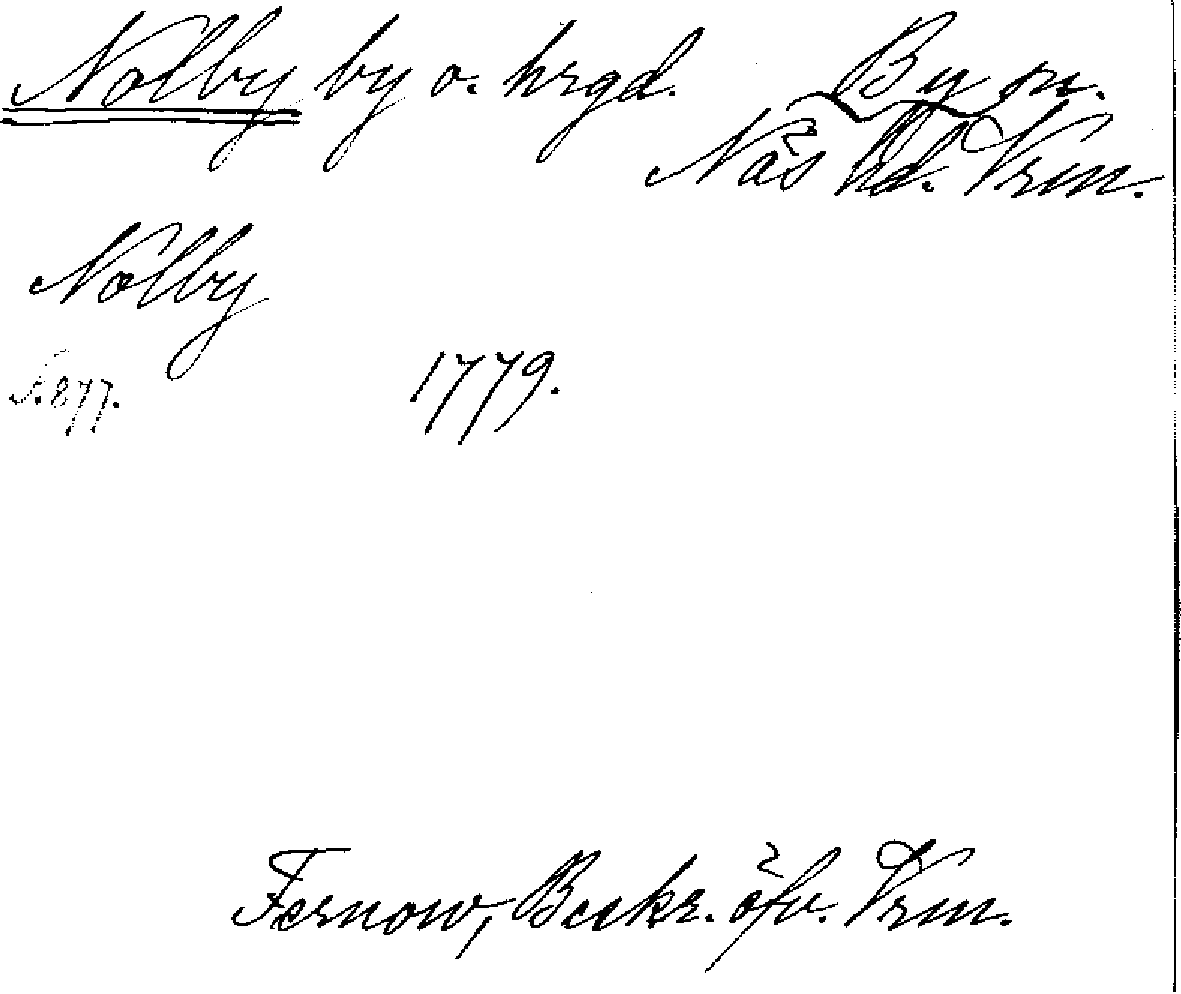 Nolby by o. hrgd. By sn.
Näs hd. Vrm.
Nolby
S. 877. 1779.
Fernow, Beskr. öfv. Vrm.